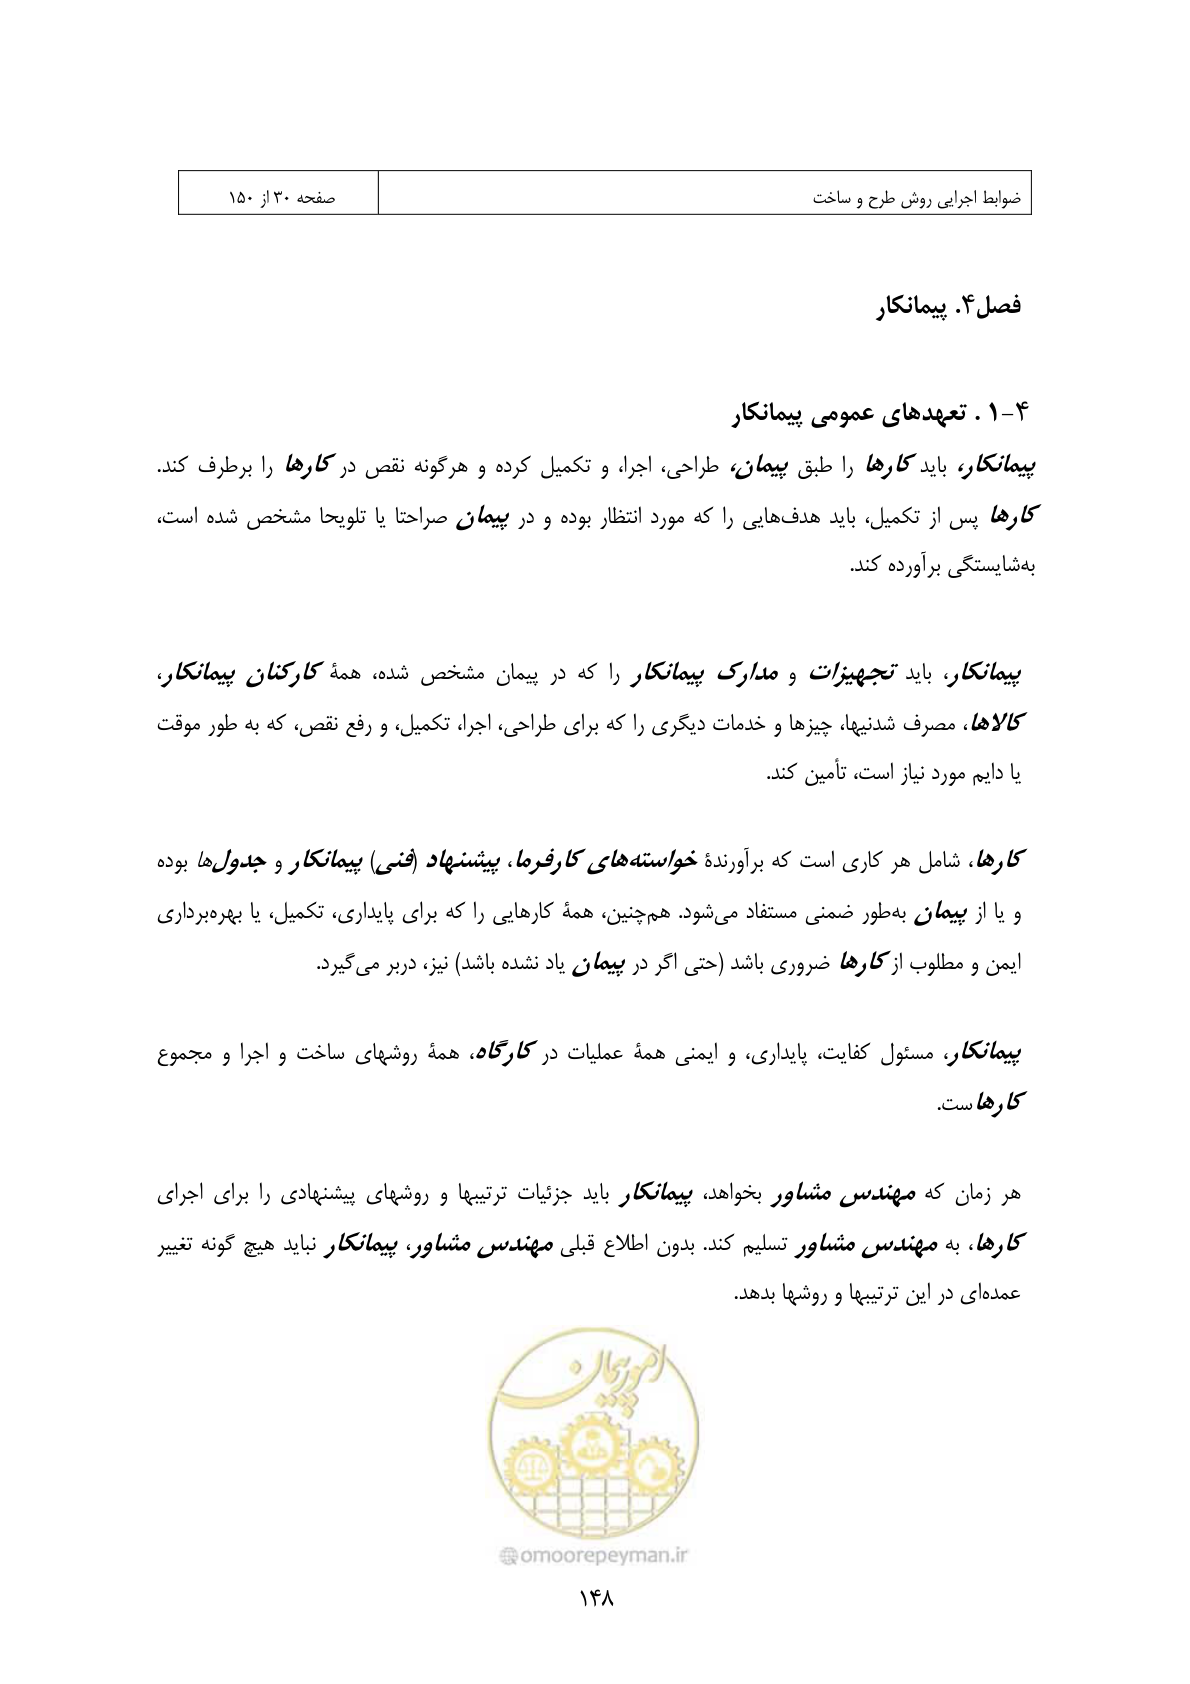 ضوابط اجرایی روش طرح و ساخت
صفحه ۳۰ از ۱۵۰
فصل۴. پیمانکار
۴-۱ . تعهدهای عمومی پیمانکار
پیمانکار، باید کارها را طبق پیمان، طراحی، اجرا، و تکمیل کرده و هرگونه نقص در کارها را برطرف کند.
کارها پس از تکمیل، باید هدف‌هایی را که مورد انتظار بوده و در پیمان صراحتا یا تلویحا مشخص شده است،
به‌شایستگی برآورده کند.
پیمانکار، باید تجهیزات و مدارک پیمانکار را که در پیمان مشخص شده، همهٔ کارکنان پیمانکار،
کالاها، مصرف شدنیها، چیزها و خدمات دیگری را که برای طراحی، اجرا، تکمیل، و رفع نقص، که به طور موقت
یا دایم مورد نیاز است، تأمین کند.
کارها، شامل هر کاری است که برآورندهٔ خواسته‌های کارفرما، پیشنهاد (فنی) پیمانکار و جدول‌ها بوده
و یا از پیمان به‌طور ضمنی مستفاد می‌شود. هم‌چنین، همهٔ کارهایی را که برای پایداری، تکمیل، یا بهره‌برداری
ایمن و مطلوب از کارها ضروری باشد (حتی اگر در پیمان یاد نشده باشد) نیز، دربر می‌گیرد.
پیمانکار، مسئول کفایت، پایداری، و ایمنی همهٔ عملیات در کارگاه، همهٔ روشهای ساخت و اجرا و مجموع
کارهاست.
هر زمان که مهندس مشاور بخواهد، پیمانکار باید جزئیات ترتیبها و روشهای پیشنهادی را برای اجرای
کارها، به مهندس مشاور تسلیم کند. بدون اطلاع قبلی مهندس مشاور، پیمانکار نباید هیچ گونه تغییر
عمده‌ای در این ترتیبها و روشها بدهد.
امور پیمان
omoorepeyman.ir
۱۴۸